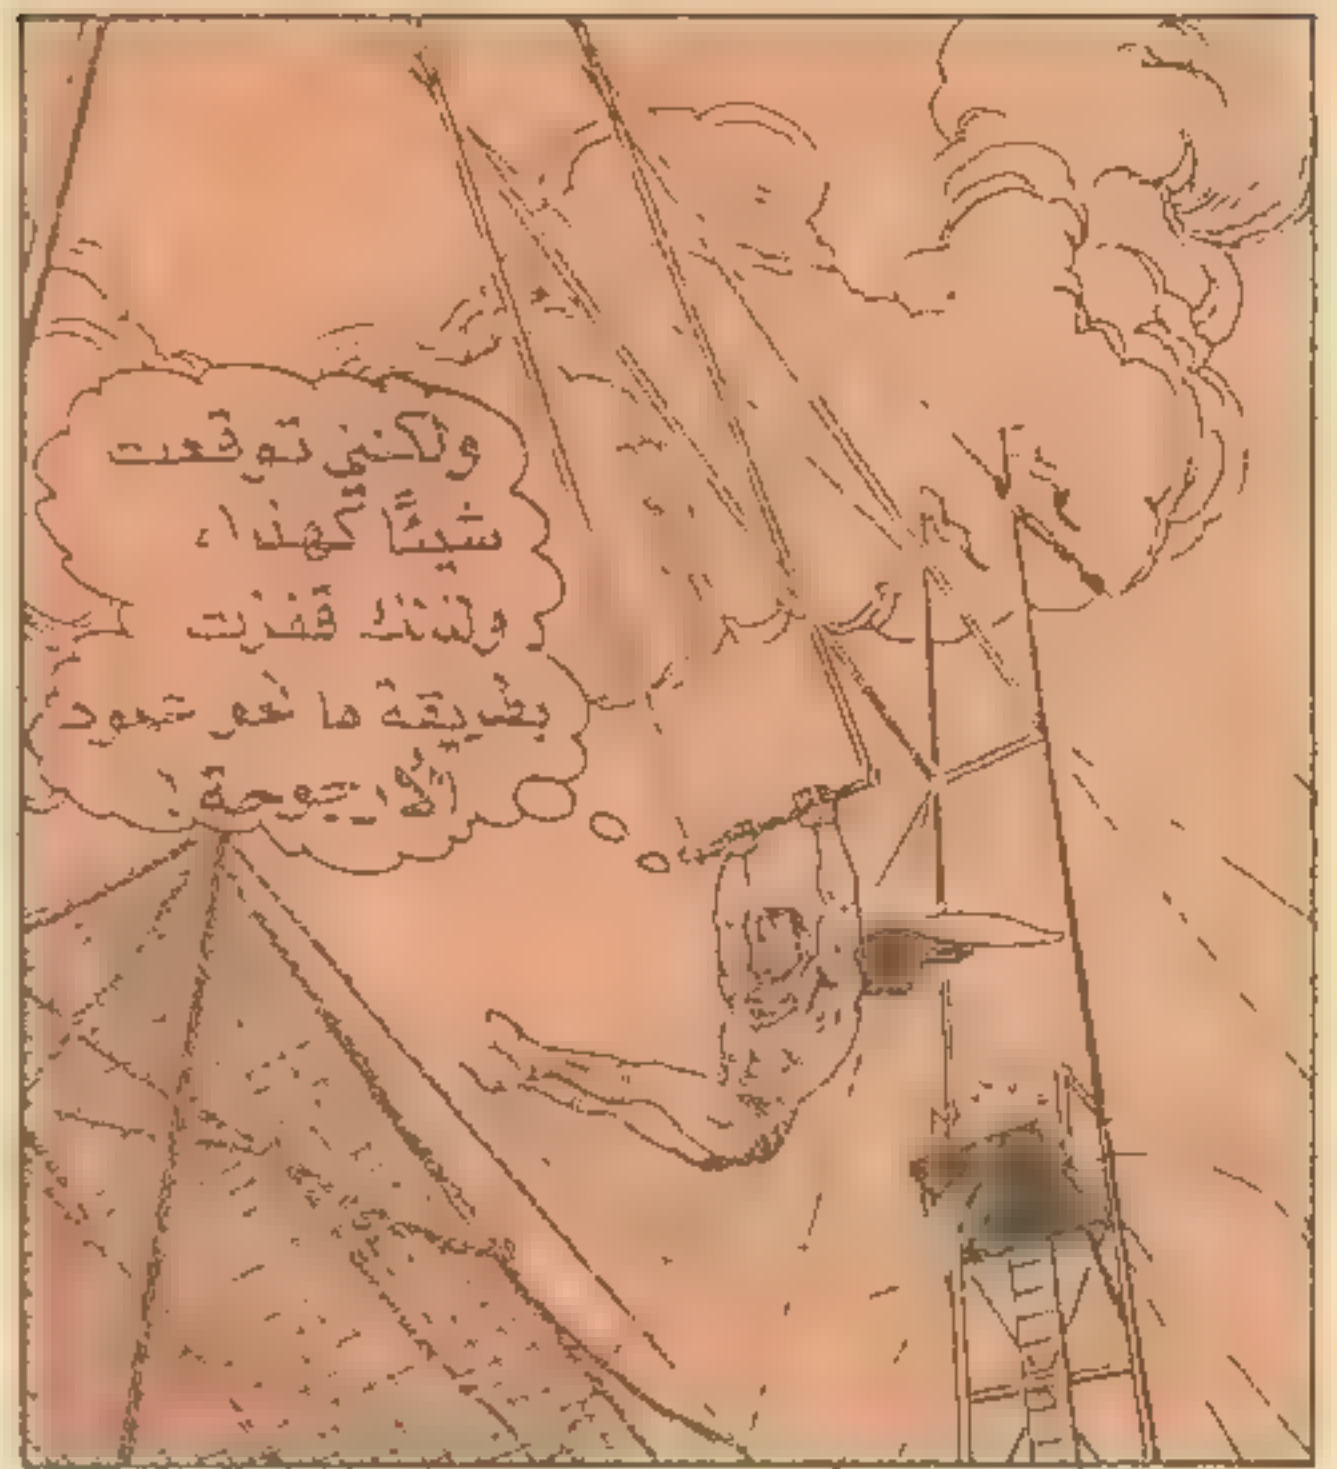 ولكننى توقعت
شيئًا كهذا،
ولذلك قفزت
بطريقة ما نحو عمود
الأرجوحة!